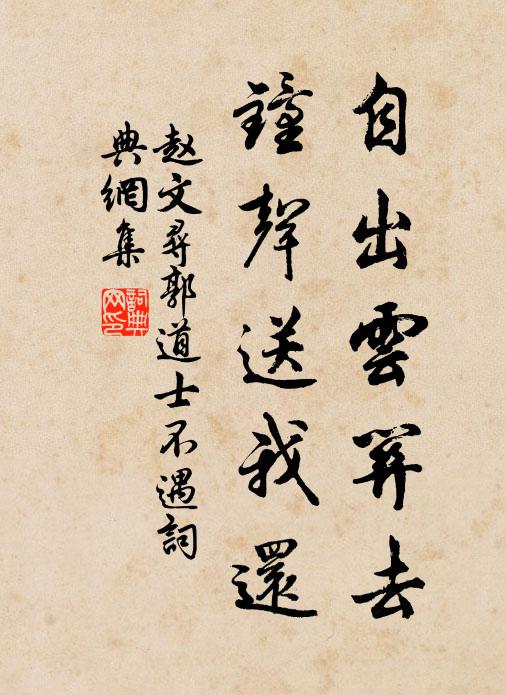 自出雲去
鐘聲送我還
赵文尋郭道士不遇詞
典網集
詞典网印